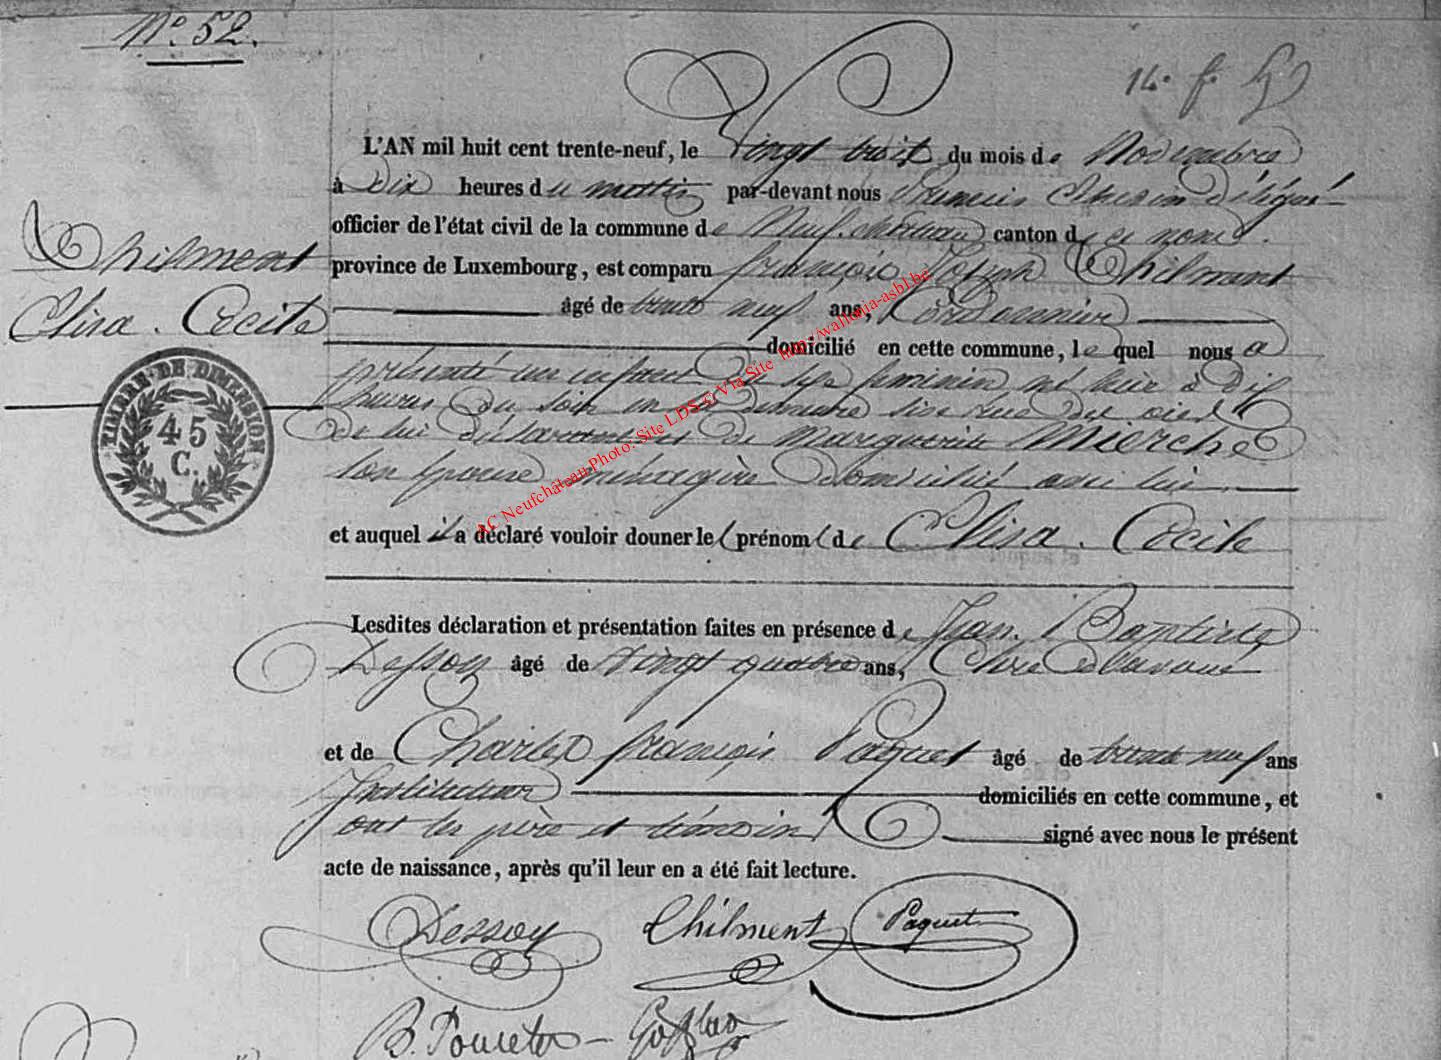 N° 52.
L'AN mil huit cent trente-neuf, le Vingt trois du mois de Novembre
à Dix heures du matin par-devant nous délégué
officier de l'état civil de la commune de Neufchateau canton de ce nom.
Thilment
province de Luxembourg, est comparu françois Joseph Thilment
Elisa. Cecile
âgé de trente neuf ans, Cordonnier
domicilié en cette commune, lequel nous a
présenté un enfant du sexe feminin né hier à dix
heures du soir en sa demeure sise rue du
de lui déclarant et de Marguerite Mierche
son épouse ménagère domicilié avec lui
TIMBRE DE DIMENSION
45
C.
et auquel il a déclaré vouloir donner le prénom de Elisa. Cecile
Lesdites déclaration et présentation faites en présence de Jean. Baptiste
Dessoy âgé de vingt quatre ans,
et de Charles françois Paquet âgé de trente neuf ans
Instituteur domiciliés en cette commune, et
ont les père et témoins signé avec nous le présent
acte de naissance, après qu'il leur en a été fait lecture.
Dessoy Thilment Paquet
AC Neufchâteau Photo: Site LDS & Via Site http://wallonia-asbl.be